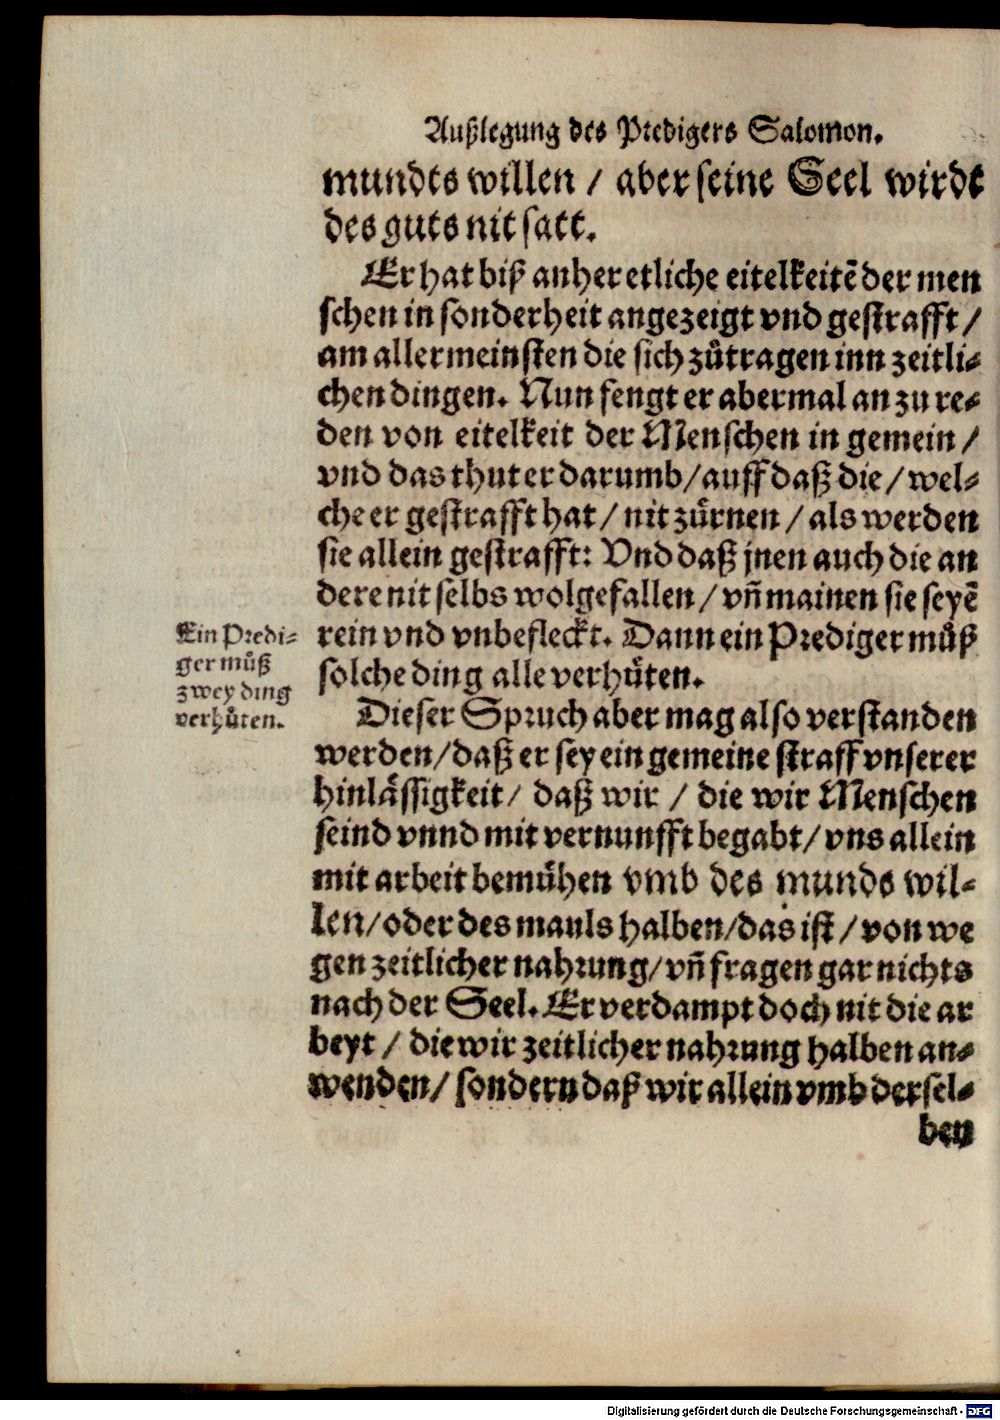 Außlegung des Predigers Salomon.
mundes willen / aber seine Seel wirdt
des guts nit satt.
Er hat biß anher etliche eitelkeitē der men
schen in sonderheit angezeigt vnd gestrafft /
am allermeinsten die sich zůtragen inn zeitli⸗
chen dingen. Nun fengt er abermal an zu re⸗
den von eitelkeit der Menschen in gemein /
vnd das thut er darumb / auff daß die / wel⸗
che er gestrafft hat / nit zürnen / als werden
sie allein gestrafft: Vnd daß jnen auch die an
dere nit selbs wolgefallen / vn̄ mainen sie seyē
rein vnd vnbefleckt. Dann ein Prediger můß
solche ding alle verhüten.
Ein Predi⸗
ger můß
zwey ding
verhüten.
Dieser Spruch aber mag also verstanden
werden / daß er sey ein gemeine straff vnserer
hinlässigkeit / daß wir / die wir Menschen
seind vnnd mit vernunfft begabt / vns allein
mit arbeit bemühen vmb des munds wil⸗
len / oder des mauls halben / das ist / von we
gen zeitlicher nahrung / vn̄ fragen gar nichts
nach der Seel. Er verdampt doch nit die ar
beyt / die wir zeitlicher nahrung halben an⸗
wenden / sondern daß wir allein vmb dersel⸗
ben
Digitalisierung gefördert durch die Deutsche Forschungsgemeinschaft - DFG